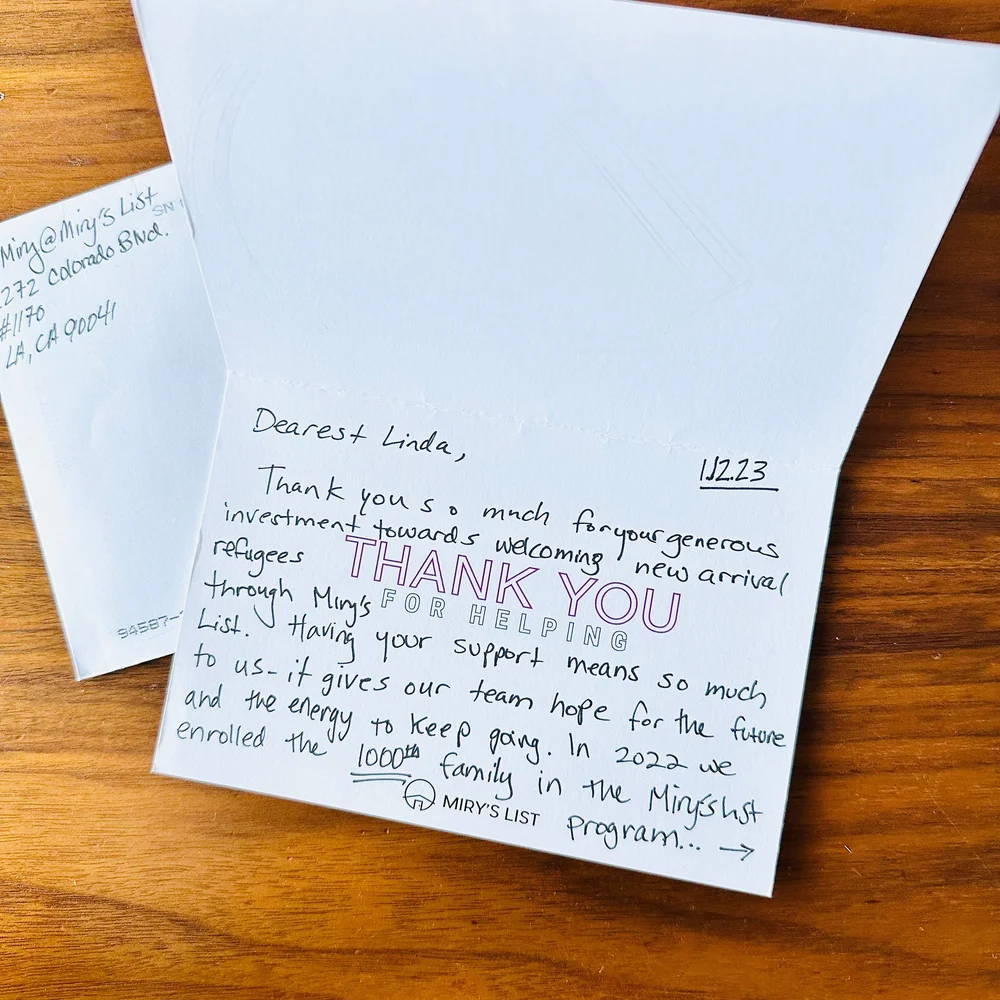 Miry@Miry's List
SN
272 Colorado Blvd.
#1170
LA, CA 90041
94587-
Dearest Linda,
1.12.23
Thank you so much for your generous
investment towards welcoming new arrival
refugees
THANK YOU
FOR HELPING
through Miry's
List. Having your support means so much
to us - it gives our team hope for the future
and the energy to keep going. In 2022 we
enrolled the 1000th family in the Miry's List
program... →
MIRY'S LIST